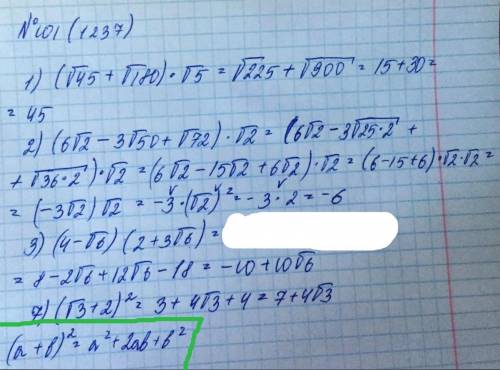 № 601 (1237)
1) (√45 + √180) · √5 = √225 + √900 = 15 + 30 =
= 45
2) (6√2 − 3√50 + √72) · √2 = (6√2 − 3√25·2 +
+ √36·2) · √2 = (6√2 − 15√2 + 6√2) · √2 = (6−15+6) · √2·√2 =
= (−3√2) √2 = −3 · (√2)² = −3 · 2 = −6
3) (4−√6) (2+3√6) =
= 8 − 2√6 + 12√6 − 18 = −10 + 10√6
7) (√3 + 2)² = 3 + 4√3 + 4 = 7 + 4√3
(a + b)² = a² + 2ab + b²